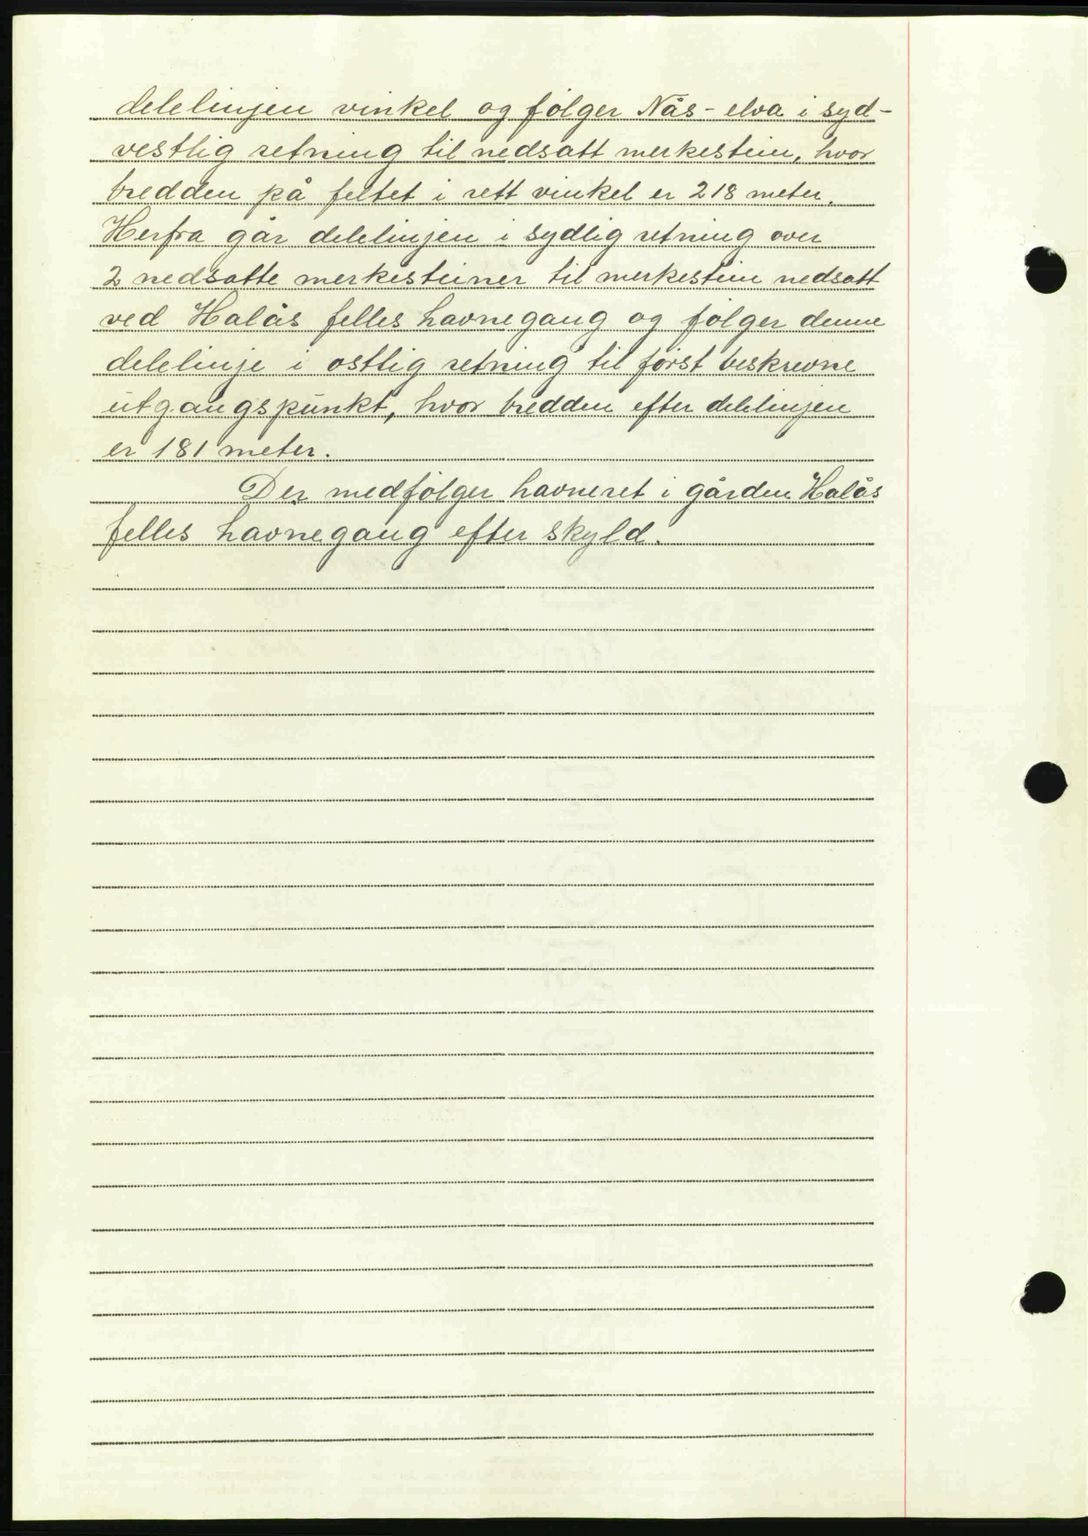 delelinjen vinkel og følger Nås-elva i syd-
vestlig retning til nedsatt merkestein, hvor
bredden på feltet i rett vinkel er 218 meter.
Herfra går delelinjen i sydlig retning over
2 nedsatte merkesteiner til merkestein nedsatt
ved Halås felles havnegang og følger denne
delelinje i østlig retning til først beskrevne
utgangspunkt, hvor bredden efter delelinjen
er 181 meter.
Der medfølger havneret i gården Halås
felles havnegang efter skyld.